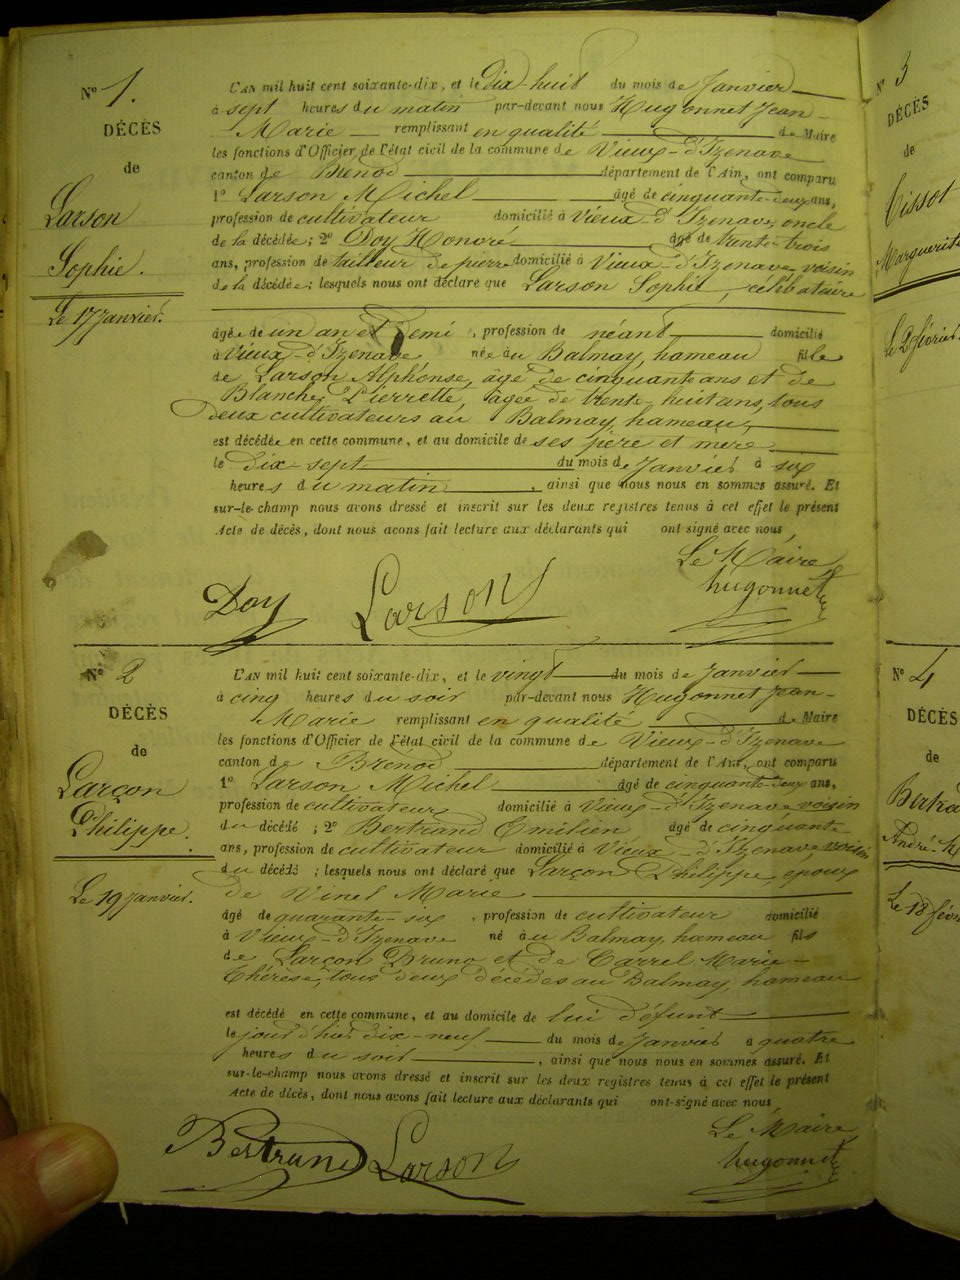 N° 1.
DÉCÈS
de
Larson
Sophie.
Le 17 janvier.
L'AN mil huit cent soixante-dix, et le Dix-huit du mois de Janvier
à sept heures du matin par-devant nous Hugonnet Jean-
Marie remplissant en qualité de Maire
les fonctions d'Officier de l'état civil de la commune de Vieux-d'Izenave
canton de Brenod département de l'Ain, ont comparu
1° Larson Michel âgé de cinquante-deux ans,
profession de cultivateur domicilié à Vieux-d'Izenave, oncle
de la décédée; 2° Doy Honoré âgé de trente-trois
ans, profession de tailleur de pierre domicilié à Vieux-d'Izenave voisin
de la décédée; lesquels nous ont déclaré que Larson Sophie, célibataire
âgée de un an et demi, profession de néant domicilié
à Vieux-d'Izenave née au Balmay, hameau fille
de Larson Alphonse, âgé de cinquante ans et de
Blanche Pierrette, âgée de trente-huit ans, tous
deux cultivateurs au Balmay, hameau,
est décédée en cette commune, et au domicile de ses père et mère
le Dix-sept du mois de Janvier à six
heures du matin, ainsi que nous nous en sommes assuré. Et
sur-le-champ nous avons dressé et inscrit sur les deux registres tenus à cet effet le présent
Acte de décès, dont nous avons fait lecture aux déclarants qui ont signé avec nous
Le Maire
Doy Larson hugonnet
N° 2
DÉCÈS
de
Larçon
Philippe.
Le 19 janvier.
L'AN mil huit cent soixante-dix, et le vingt du mois de Janvier
à cinq heures du soir par-devant nous Hugonnet Jean-
Marie remplissant en qualité de Maire
les fonctions d'Officier de l'état civil de la commune de Vieux-d'Izenave
canton de Brénod département de l'Ain, ont comparu
1° Larson Michel âgé de cinquante-deux ans,
profession de cultivateur domicilié à Vieux-d'Izenave voisin
du décédé; 2° Bertrand Emilien, âgé de cinquante
ans, profession de cultivateur domicilié à Vieux-d'Izenave voisin
du décédé; lesquels nous ont déclaré que Larçon Philippe, époux
de Vinel Marie
âgé de quarante-six, profession de cultivateur domicilié
à Vieux-d'Izenave né au Balmay, hameau fils
de Larçon Bruno et de Carrel Marie-
Thérèse, tous deux décédés au Balmay, hameau
est décédé en cette commune, et au domicile de lui défunt
le jour d'hier dix-neuf du mois de Janvier à quatre
heures du soir, ainsi que nous nous en sommes assuré. Et
sur-le-champ nous avons dressé et inscrit sur les deux registres tenus à cet effet le présent
Acte de décès, dont nous avons fait lecture aux déclarants qui ont signé avec nous
Le Maire,
Bertrand Larson hugonnet
N° 3
DÉCÈS
de
Tissot
Marguerite
Le 2 février.
N° 4
DÉCÈS
de
Bertra
André-M
Le 18 févr